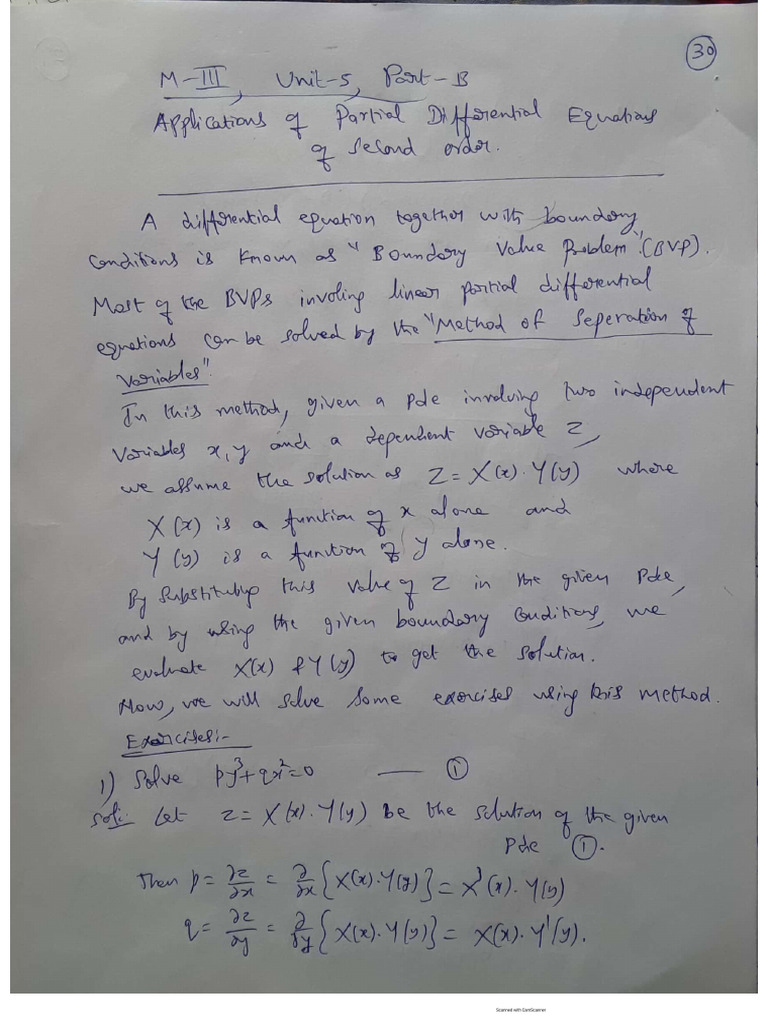 30
M-III, Unit-5, Part-B
Applications of Partial Differential Equations
of Second order.
A differential equation together with boundary
Conditions is known as "Boundary Value Problem" (BVP).
Most of the BVPs involing linear partial differential
equations can be solved by the "Method of Seperation of
Variables".
In this method, given a pde involving two independent
Variables x, y and a dependent variable Z,
we assume the solution as Z = X(x). Y(y) where
X(x) is a function of x alone and
Y(y) is a function of y alone.
By substituting this value of Z in the given Pde,
and by using the given boundary conditions, we
evaluate X(x) & Y(y) to get the solution.
Now, we will solve some exercises using this method.
Exercises:-
1) Solve py³+qx²=0 —— ①
Sol: Let z = X(x). Y(y) be the solution of the given
Pde ①.
Then p = ∂z/∂x = ∂/∂x {X(x).Y(y)} = X'(x). Y(y)
q = ∂z/∂y = ∂/∂y {X(x).Y(y)} = X(x). Y'(y).
Scanned with CamScanner